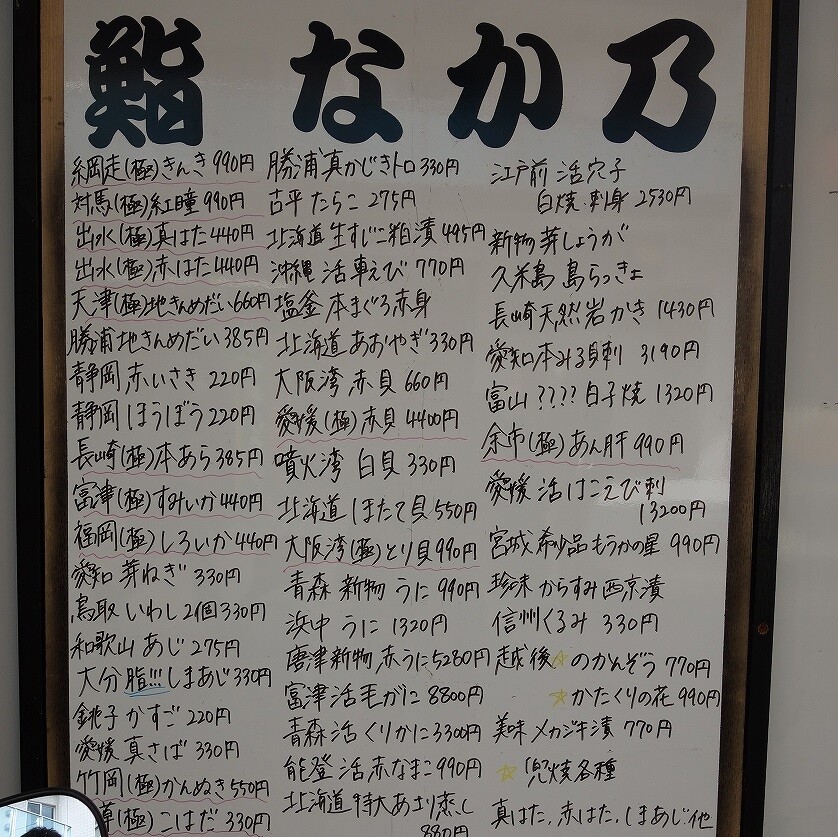 鮨 なか乃
網走(極)きんき 990円
対馬(極)紅瞳 990円
出水(極)真はた 440円
出水(極)赤はた 440円
天津(極)地きんめだい 660円
勝浦地きんめだい 385円
静岡 赤いさき 220円
静岡 ほうぼう 220円
長崎(極)本あら 385円
富津(極)すみいか 440円
福岡(極)しろいか 440円
愛知 芽ねぎ 330円
鳥取 いわし2個 330円
和歌山 あじ 275円
大分 脂!!! しまあじ 330円
銚子 かすご 220円
愛媛 真さば 330円
竹岡(極)かんぬき 550円
草(極)こはだ 330円
勝浦真かじきトロ 330円
古平 たらこ 275円
北海道 生すじこ粕漬 495円
沖縄 活車えび 770円
塩釜 本まぐろ赤身
北海道 あおやぎ 330円
大阪湾 赤貝 660円
愛媛(極)赤貝 4400円
噴火湾 白貝 330円
北海道 ほたて貝 550円
大阪湾(極)とり貝 990円
青森 新物 うに 990円
浜中 うに 1320円
唐津新物 赤うに 5280円
富津 活毛がに 8800円
青森 活くりかに 3300円
能登 活赤なまこ 990円
北海道 特大あさり蒸し
880円
江戸前 活穴子
白焼・刺身 2530円
新物 芽しょうが
久米島 島らっきょ
長崎天然岩かき 1430円
愛知本みる貝刺 3190円
富山 ???? 白子焼 1320円
余市(極)あん肝 990円
愛媛 活はこえび刺
13200円
宮城 希少品 もうかの星 990円
珍味 からすみ西京漬
信州くるみ 330円
越後☆のかんぞう 770円
☆かたくりの花 990円
美味 メカジキ漬 770円
☆兜焼各種
真はた、赤はた、しまあじ他